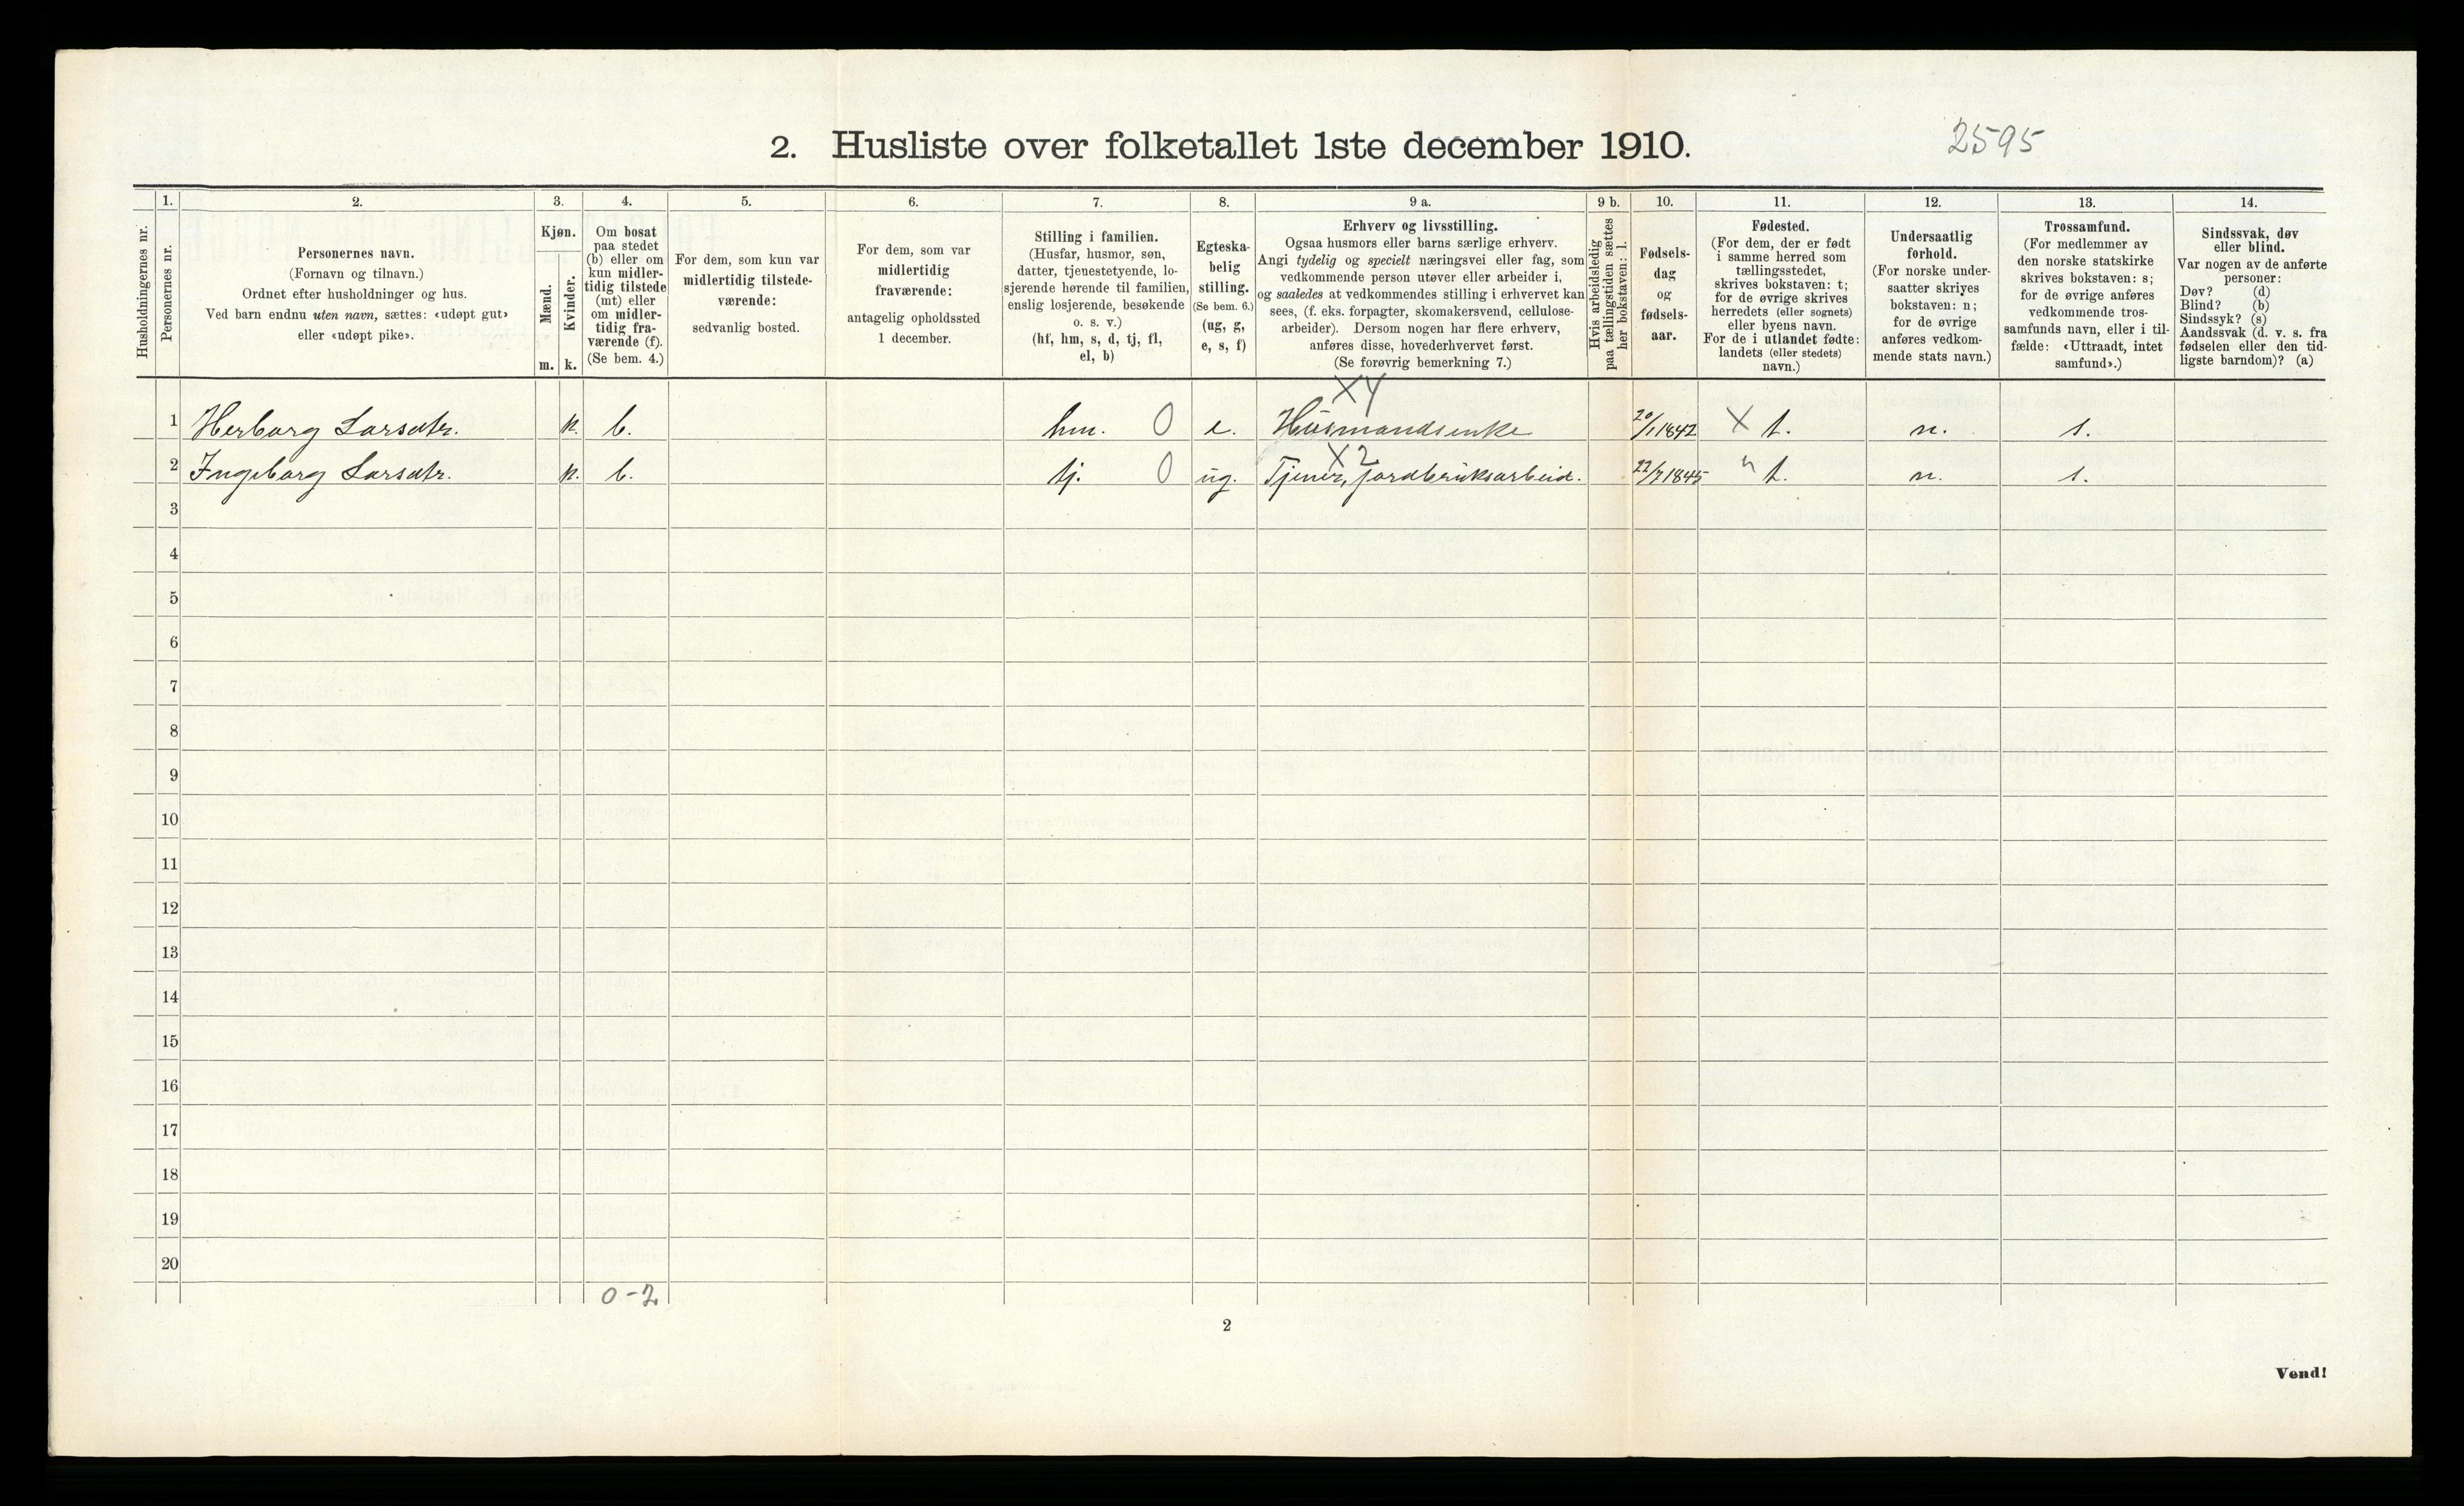 2. Husliste over folketallet 1ste december 1910.
2595
Husholdningernes nr.
1.
Personernes nr.
2.
Personernes navn.
(Fornavn og tilnavn.)
Ordnet efter husholdninger og hus.
Ved barn endnu uten navn, sættes: «udøpt gut»
eller «udøpt pike».
3.
Kjøn.
Mænd.
Kvinder.
m. k.
4.
Om bosat
paa stedet
(b) eller om
kun midler-
tidig tilstede
(mt) eller
om midler-
tidig fra-
værende (f).
(Se bem. 4.)
5.
For dem, som kun var
midlertidig tilstede-
værende:
sedvanlig bosted.
6.
For dem, som var
midlertidig
fraværende:
antagelig opholdssted
1 december.
7.
Stilling i familien.
(Husfar, husmor, søn,
datter, tjenestetyende, lo-
sjerende hørende til familien,
enslig losjerende, besøkende
o. s. v.)
(hf, hm, s, d, tj, fl,
el, b)
8.
Egteska-
belig
stilling.
(Se bem. 6.)
(ug, g,
e, s, f)
9 a.
Erhverv og livsstilling.
Ogsaa husmors eller barns særlige erhverv.
Angi tydelig og specielt næringsvei eller fag, som
vedkommende person utøver eller arbeider i,
og saaledes at vedkommendes stilling i erhvervet kan
sees, (f. eks. forpagter, skomakersvend, cellulose-
arbeider). Dersom nogen har flere erhverv,
anføres disse, hovederhvervet først.
(Se forøvrig bemerkning 7.)
9 b.
Hvis arbeidsledig
paa tællingstiden sættes
her bokstaven: l.
10.
Fødsels-
dag
og
fødsels-
aar.
11.
Fødested.
(For dem, der er født
i samme herred som
tællingsstedet,
skrives bokstaven: t;
for de øvrige skrives
herredets (eller sognets)
eller byens navn.
For de i utlandet fødte:
landets (eller stedets)
navn.)
12.
Undersaatlig
forhold.
(For norske under-
saatter skrives
bokstaven: n;
for de øvrige
anføres vedkom-
mende stats navn.)
13.
Trossamfund.
(For medlemmer av
den norske statskirke
skrives bokstaven: s;
for de øvrige anføres
vedkommende tros-
samfunds navn, eller i til-
fælde: «Uttraadt, intet
samfund».)
14.
Sindssvak, døv
eller blind.
Var nogen av de anførte
personer:
Døv? (d)
Blind? (b)
Sindssyk? (s)
Aandssvak (d. v. s. fra
fødselen eller den tid-
ligste barndom)? (a)
XY
1 Herborg Larsdtr. k. b. hm. 0 e. Husmandsenke 20/1 1842 X t. n. s.
X2
2 Ingeborg Larsdtr. k. b. tj. 0 ug. Tjener, jordbruksarbeid. 22/7 1845 " t. n. s.
3
4
5
6
7
8
9
10
11
12
13
14
15
16
17
18
19
20
0-2
2
Vend!